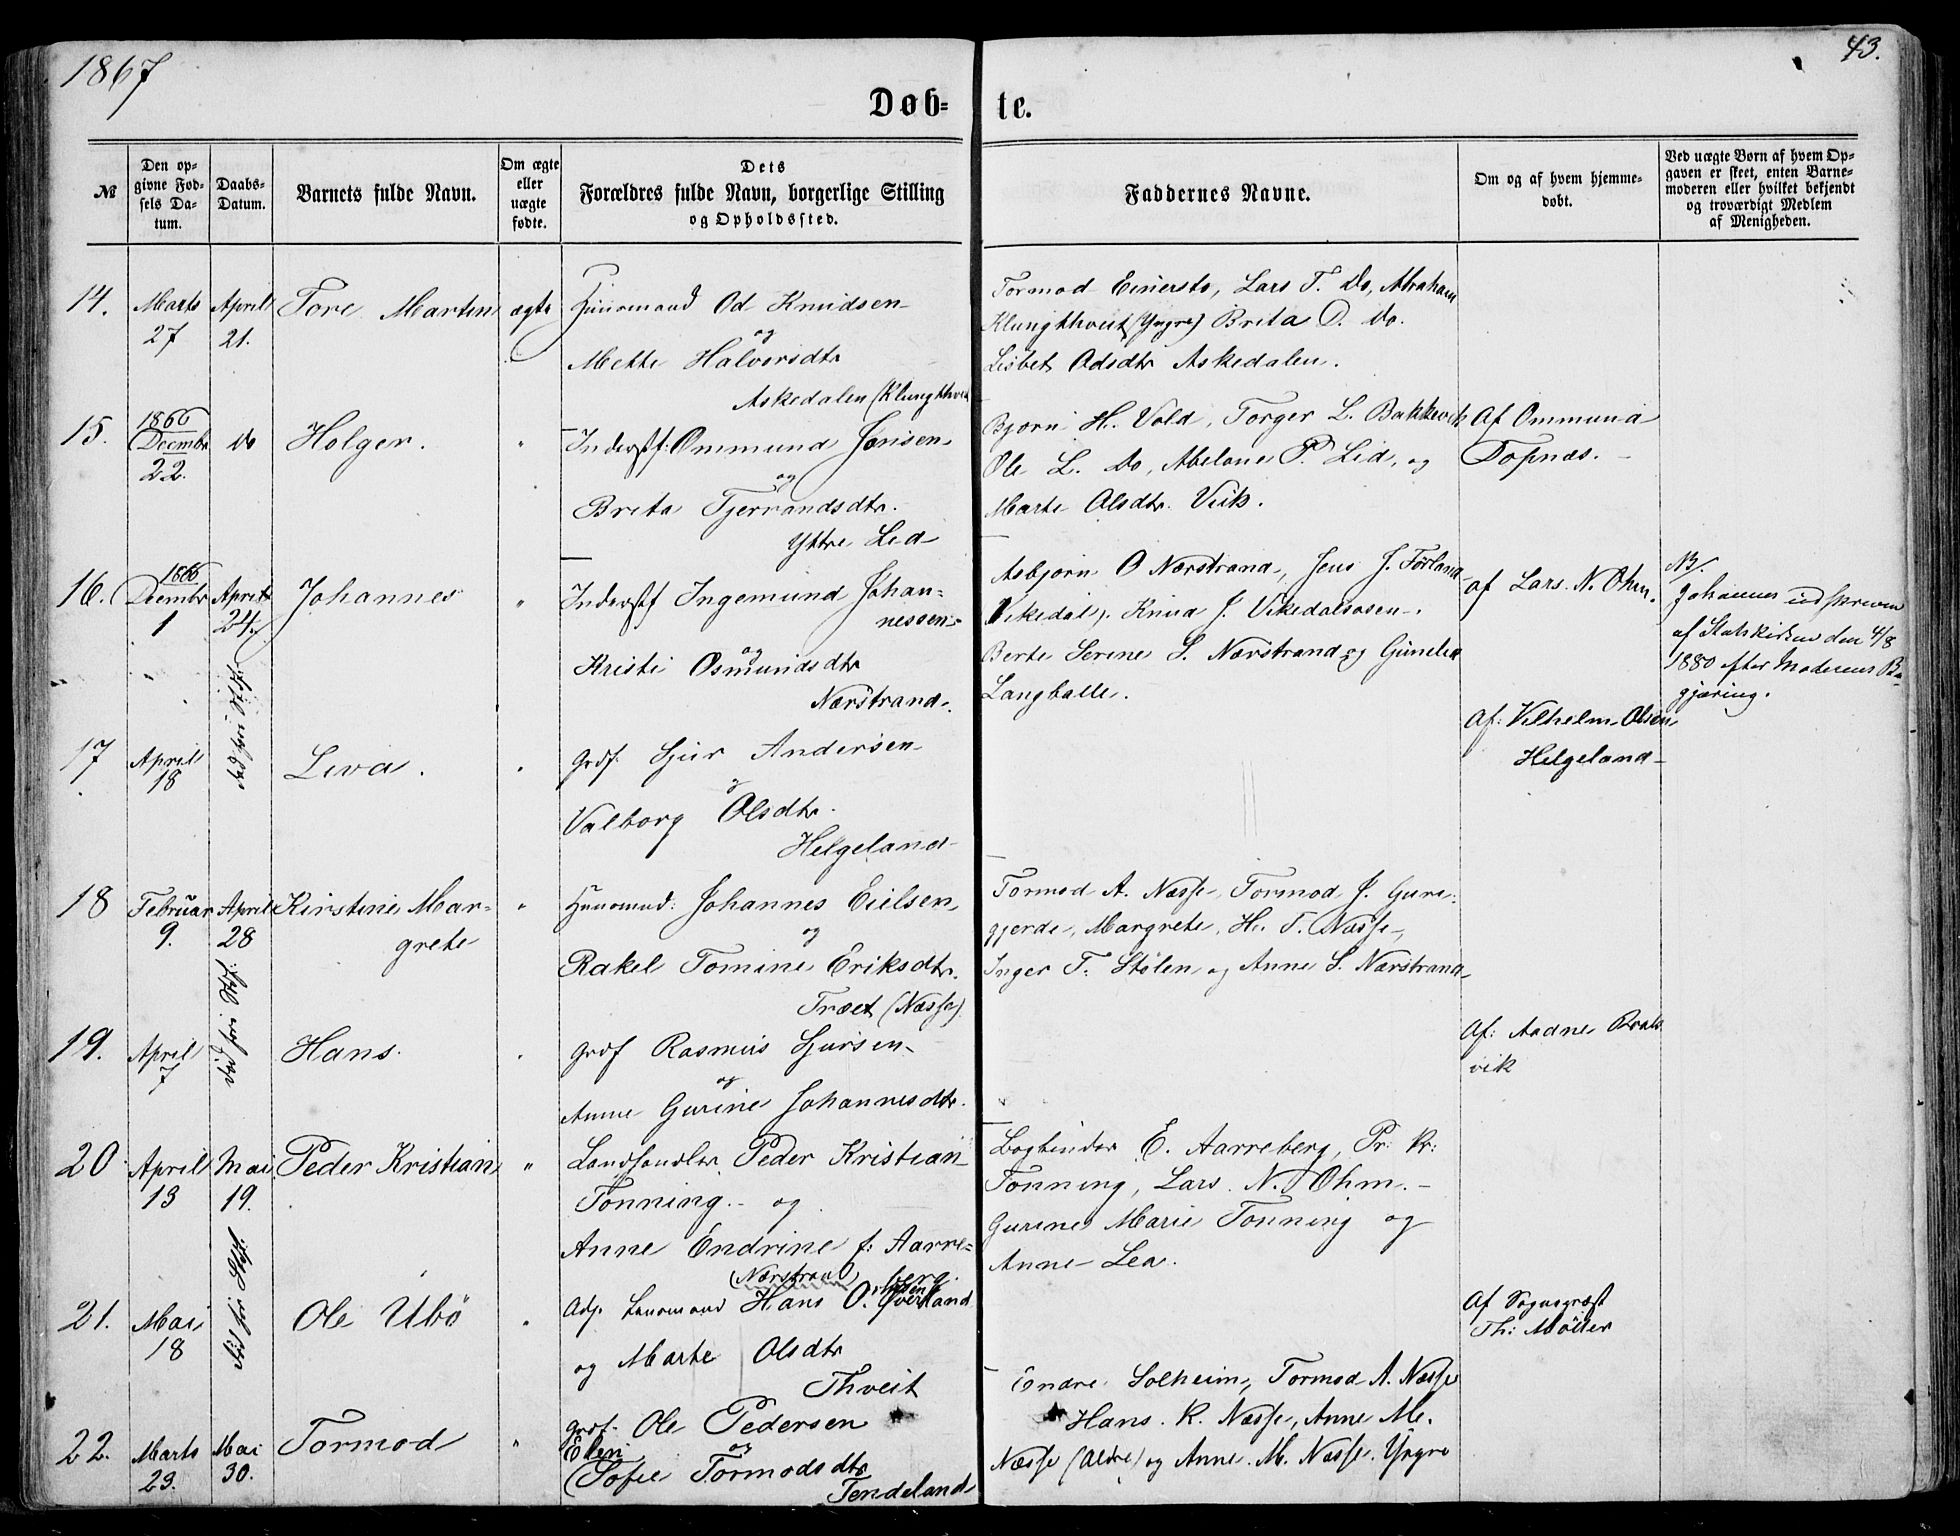 1867
43.
Døb-
te.
№
Den op-
givne Fød-
sels Da-
tum.
Daabs-
Datum.
Barnets fulde Navn.
Om ægte
eller
uægte
fødte.
Dets
Forældres fulde Navn, borgerlige Stilling
og Opholdssted.
Faddernes Navne.
Om og af hvem hjemme-
døbt.
Ved uægte Børn af hvem Op-
gaven er skeet, enten Barne-
moderen eller hvilket bekjendt
og troværdigt Medlem
af Menigheden.
14.
Marts
27
April
21.
Tore Marten
ægte
Huusmand Od Knudsen
og
Mette Halvorsdtr
Askedalen (Klungthveit
Tormod Einersto, Lars T. Do, Abraham
Klungthveit (Yngre) Brita O. Do.
Lisbet Odsdtr Askedalen.
15.
1866
Decembr
22.
do
Holger.
"
Inderstf: Ommund Jonsen
og
Brita Tjerrandsdtr.
Yttre Lid
Bjørn H. Vold, Torger L. Bakkevik
Ole L. Do, Abelone P. Lid, og
Marte Olsdtr. Viik.
Af Ommund
Topnæs.
16.
1866
Decembr
1
April
24.
Johannes
"
Inderstf Ingemund Johan=
nessen
og
Kristi Osmundsdtr
Nærstrand.
Asbjørn O Nærstrand, Jens J. Førland
Vikedal, Knud J. Vikedalsosen.
Berte Serine S. Nærstrand og Gunelia
Langballe.
af Lars N. Ohm.
NB/.
Johannes udskreven
af Statskirken den 4/8
1880 efter Moderens Be-
gjæring.
17
April
18
død før Stf.
Liva.
"
Grdf. Sjur Andersen
og
Valborg Olsdtr.
Helgeland
Af: Vilhelm Olsen
Helgeland
18
Februar
9.
April
28
Kirstine Mar-
grete
"
Huusmnd: Johannes Eielsen
og
Rakel Tomine Eriksdtr.
Træet (Næsse)
Tormod A. Næsse, Tormod J. Gure-
gjerde, Margrete H. T. Næsse,
Inger T. Stølen og Anne S. Nærstrand
19.
April
7
død før Stf:
Hans.
"
Grdf Rasmus Sjursen
og
Anne Gurine Johannesdtr.
Af: Aadne
vik
20
April
13
Mai
19.
Peder Kristian
"
Landhandler Peder Kristian
Tonning. og
Anne Endrine f: Aarre=
berg.
(Nærstrand)
Bogbinder E. Aarreberg, Pr: Kr:
Tonning, Lars. N. Ohm.
Gurine Marie Tonning og
Anne Lea.
21.
Mai
18
død før Stf.
Ole Ubö
"
Adj. Lensmand Hans O. Øverland
og Marte Olsdtr
Thveit
Af Sognepræst
Th: Möller
22.
Marts
23.
Mai
30.
Tormod
"
Grdf. Ole Pedersen
og
Elen
(Sofie Tormodsdtr
Tendeland
Endre Solheim, Tormod A. Næsse
Hans. K. Næsse, Anne M.
Næsse (Ældre) og Anne. M. Næsse. Yngre